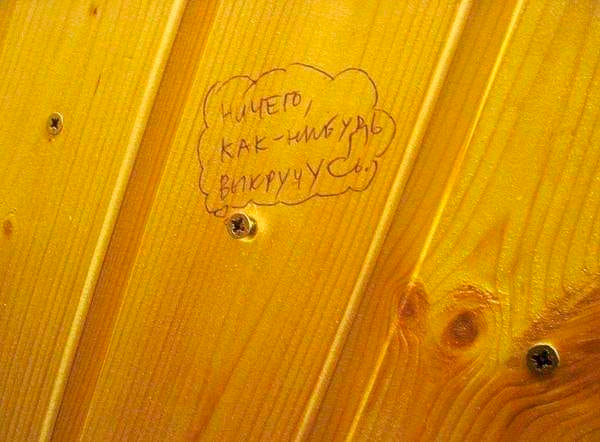 НИЧЕГО,
КАК-НИБУДЬ
ВЫКРУЧУСЬ.